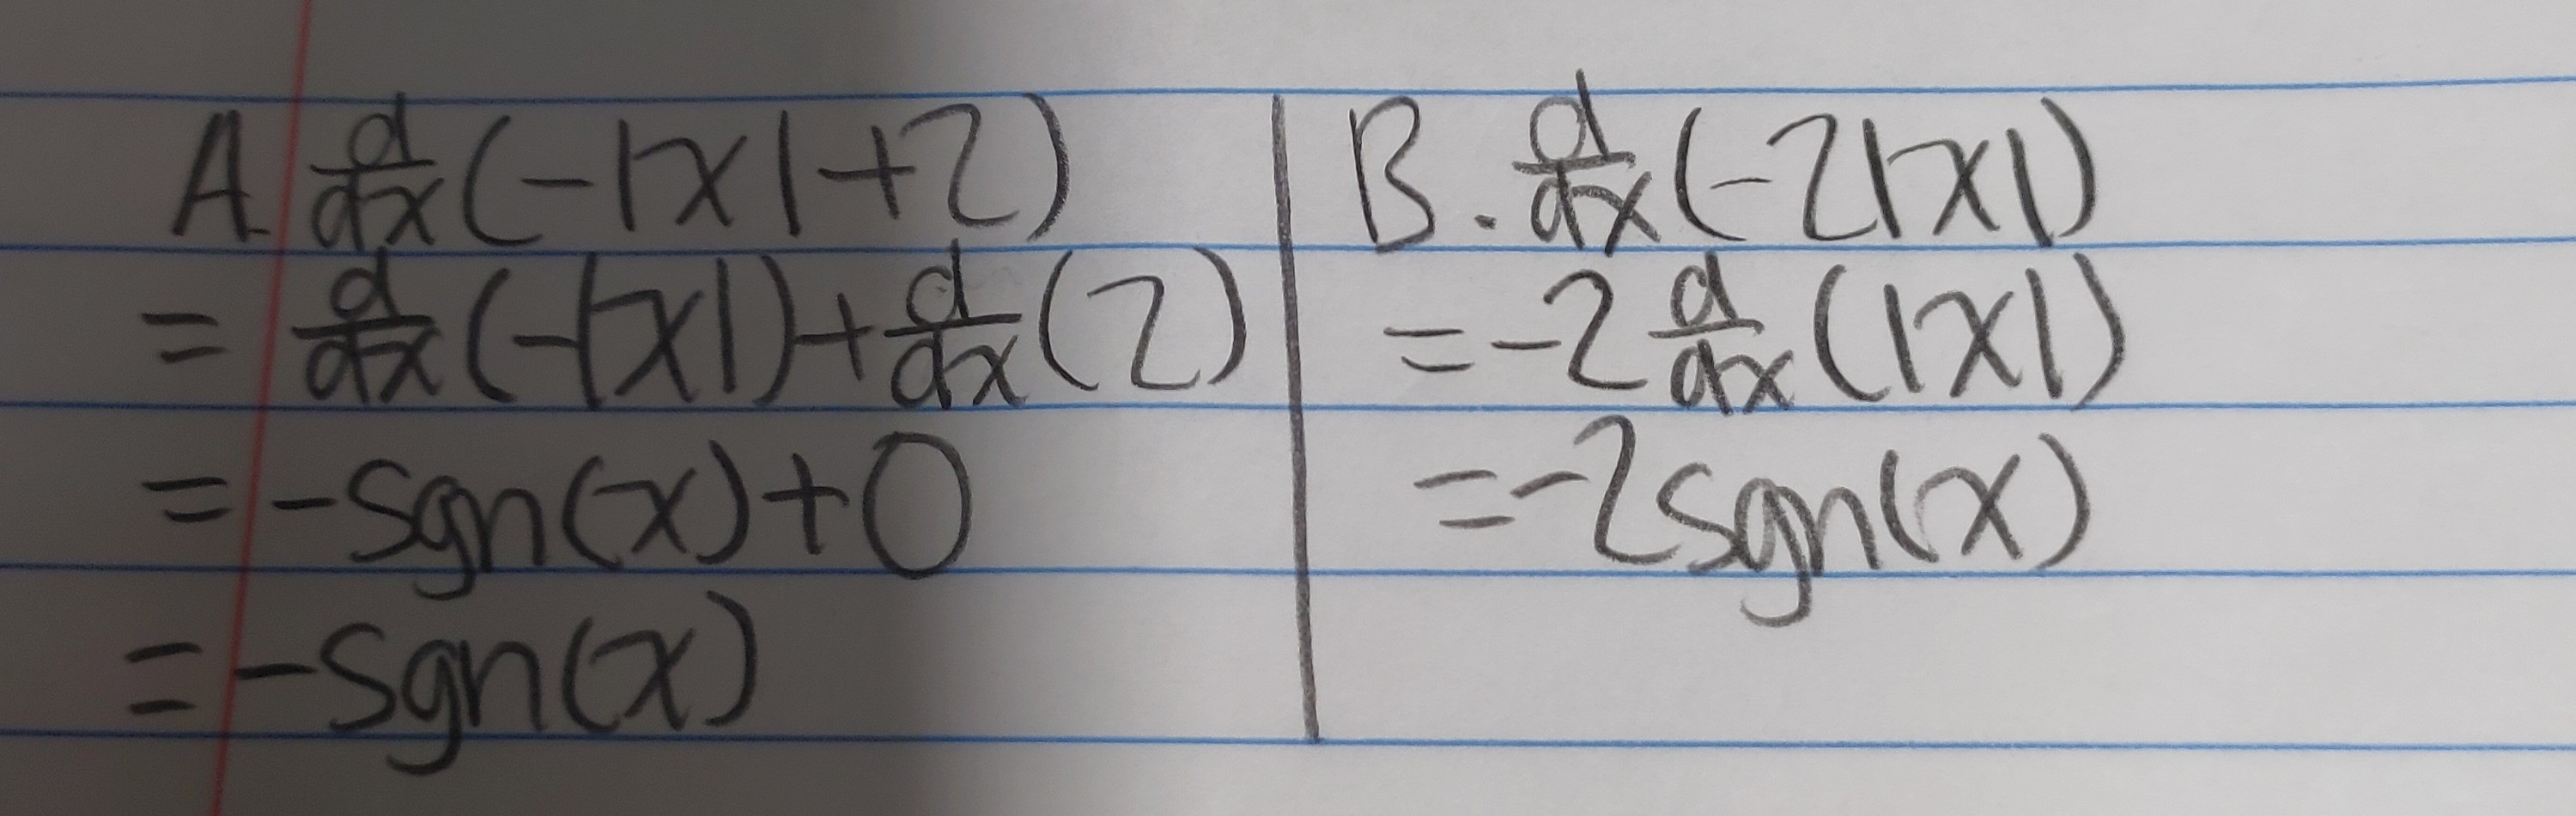 A. d/dx(-|x|+2)
= d/dx(-|x|)+d/dx(2)
= -sgn(x)+0
= -sgn(x)
B. d/dx(-2|x|)
= -2 d/dx(|x|)
= -2sgn(x)